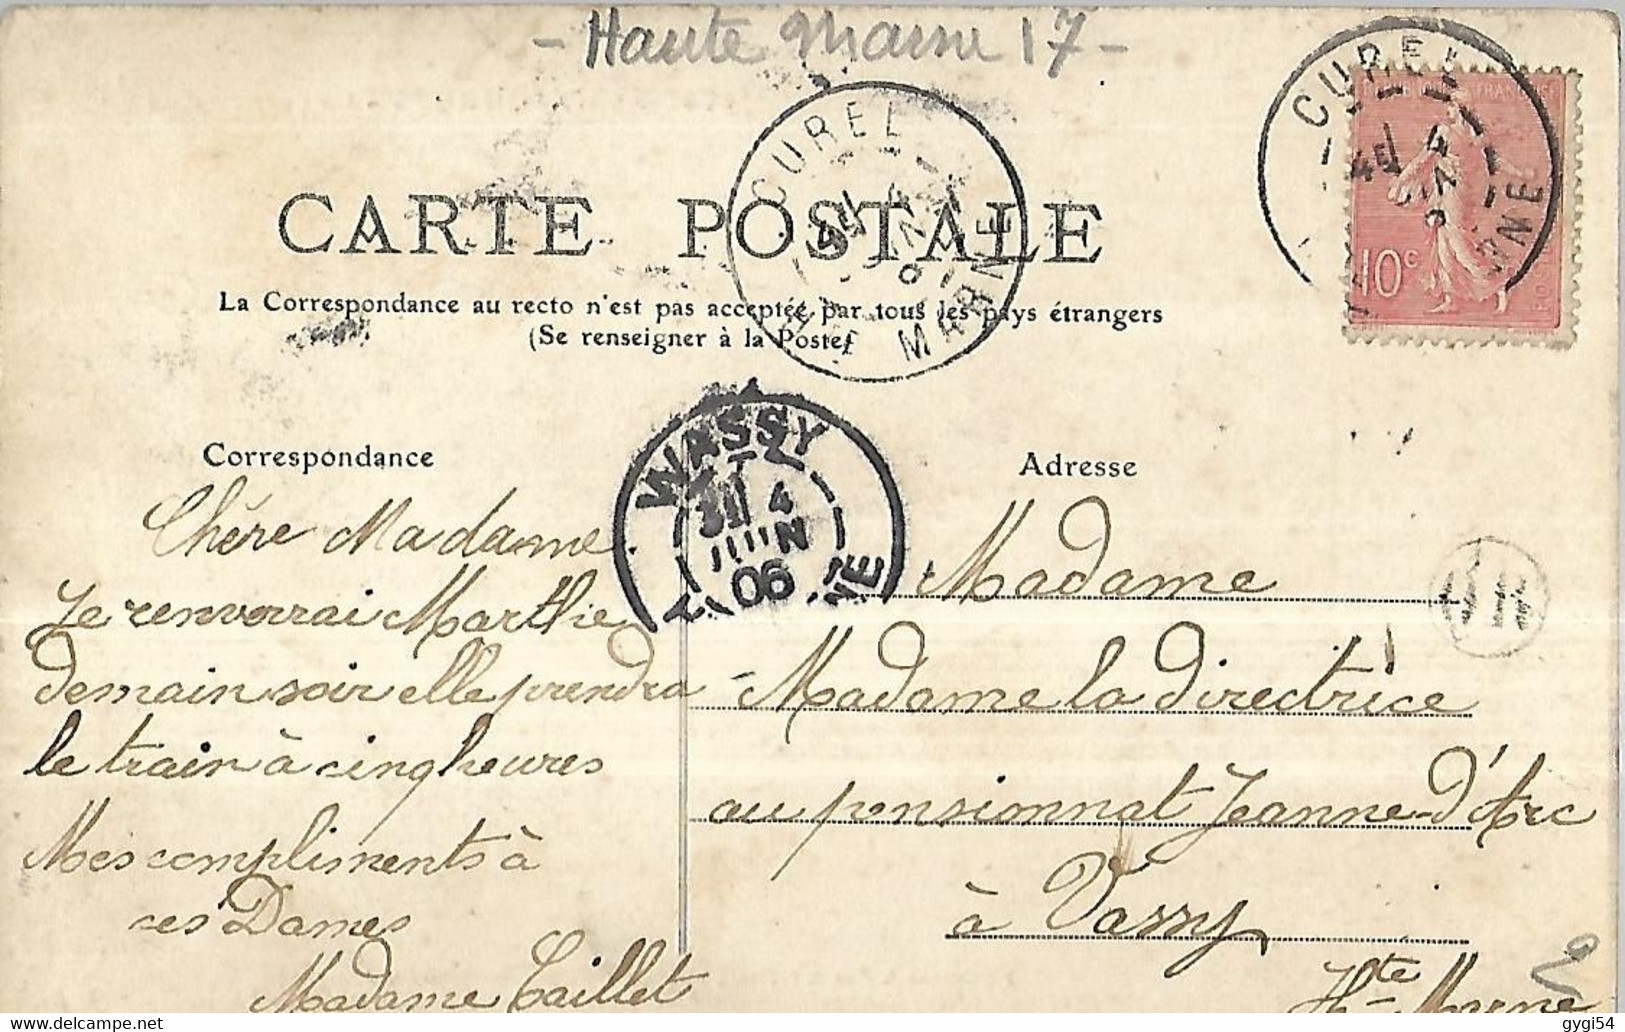 - Haute Marne 17 -
CUREL
CUREL
45
4
RNE
10c
CARTE POSTALE
La Correspondance au recto n'est pas acceptée par tous les pays étrangers
(Se renseigner à la Poste)
Hte MARNE
WASSY
4
JUIN
06
NE
Correspondance
Chère Madame.
Je renverrai Marthe
demain soir elle prendra
le train à cinq heures
Mes compliments à
ces Dames
Madame Caillet
Adresse
Madame
Madame la Directrice
au pensionnat Jeanne-d'Arc
à Vassy
Hte-Marne
2
gygi54